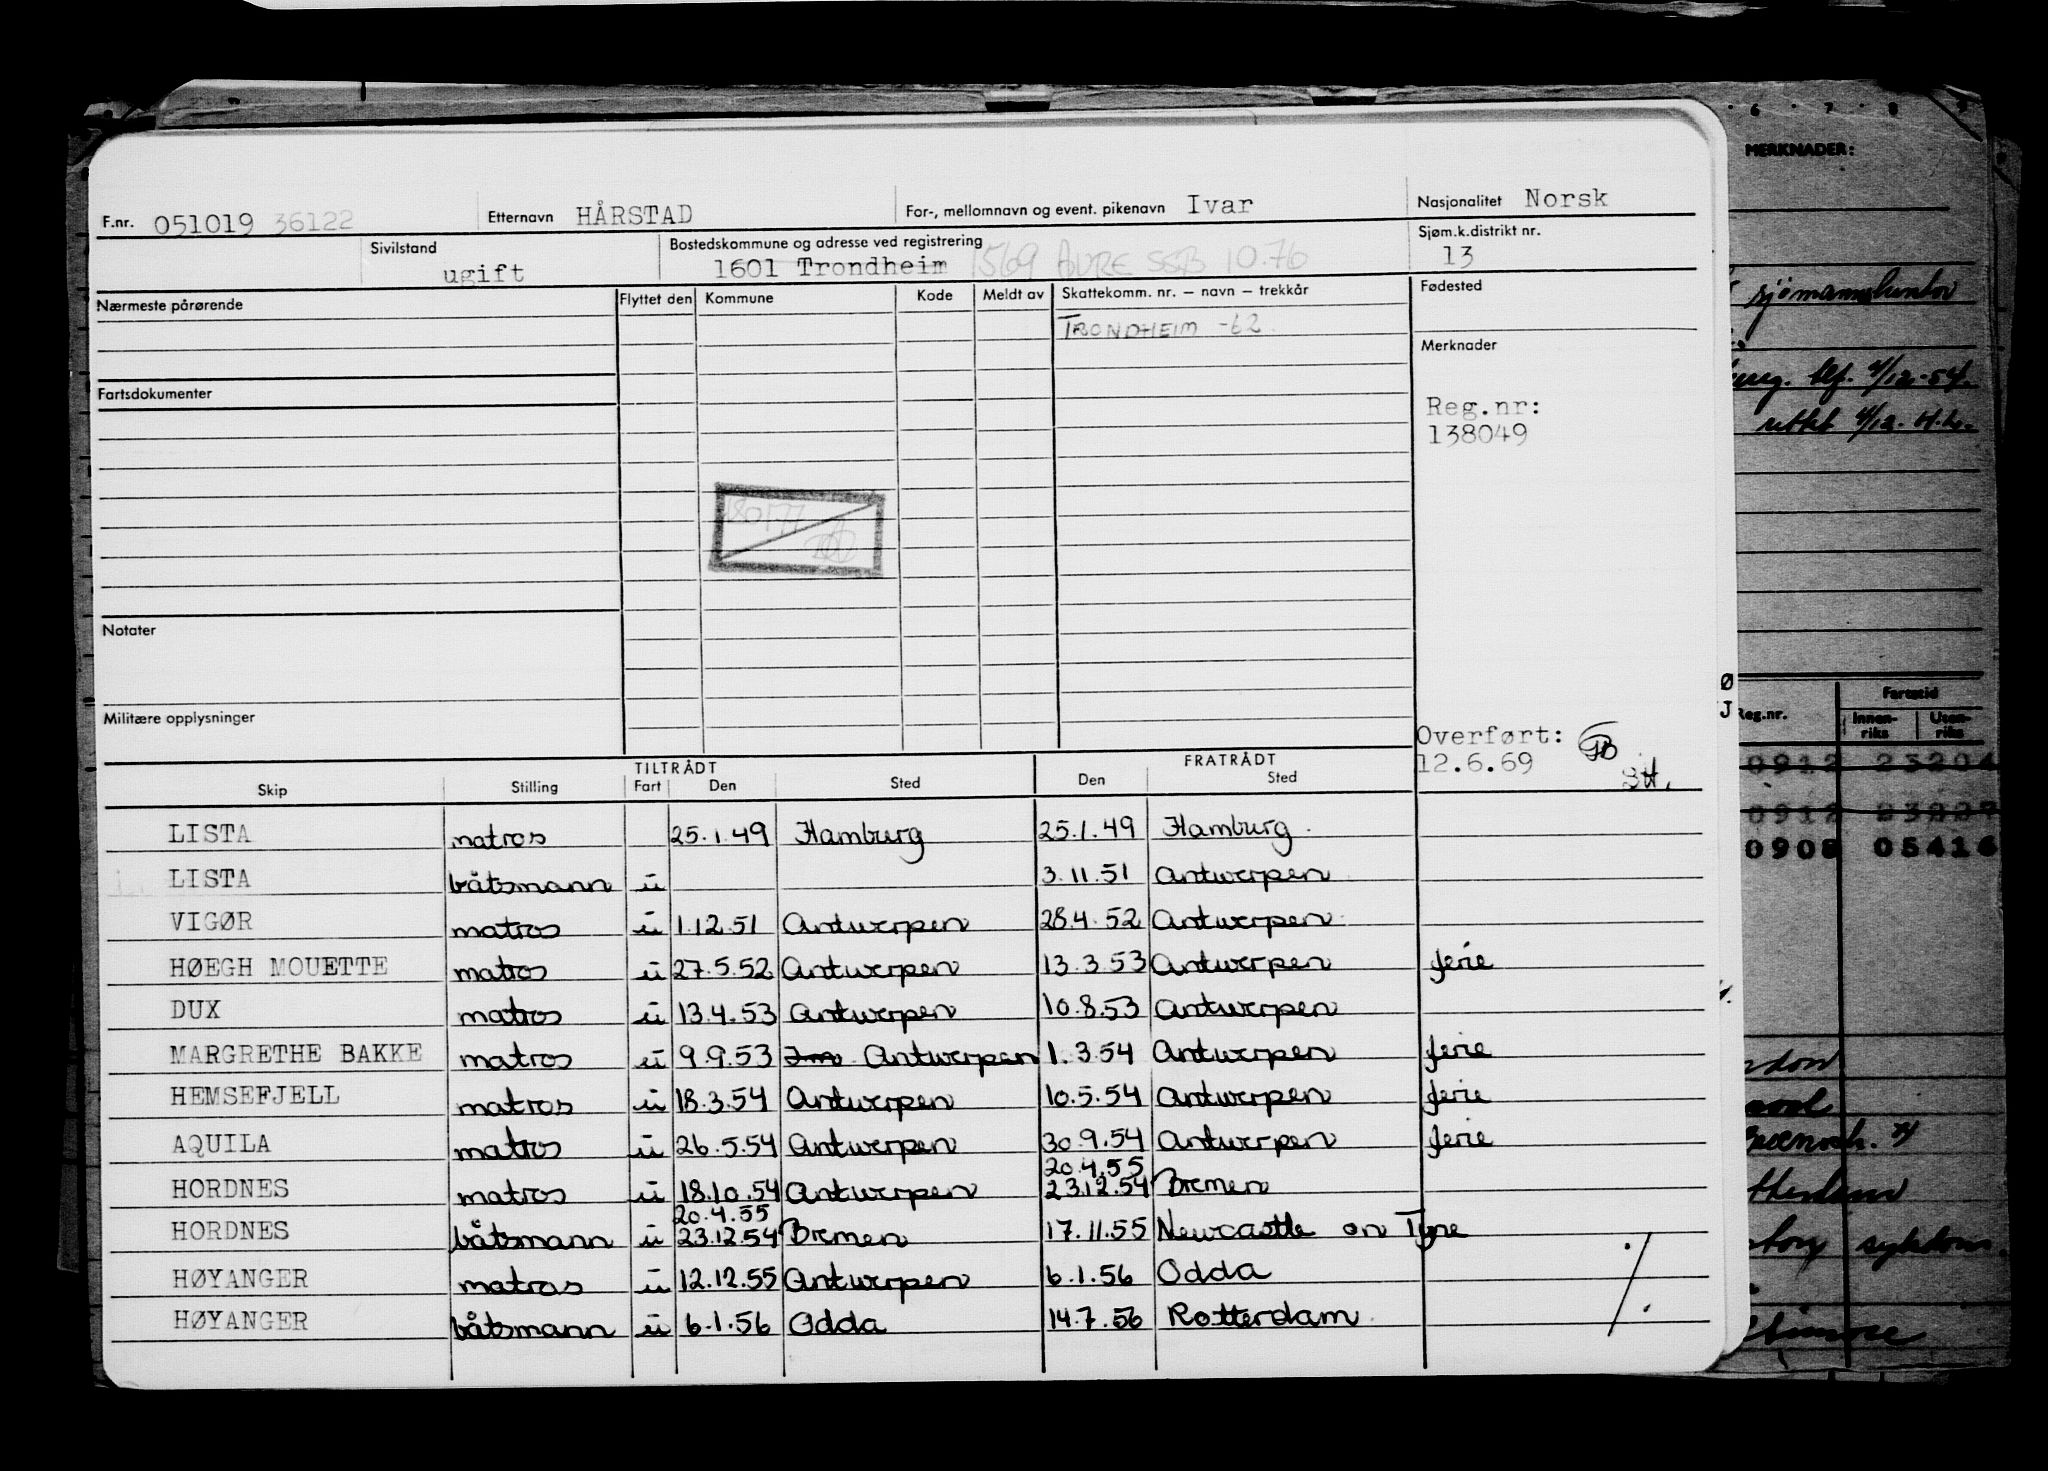 F.nr. 051019 36122 Etternavn HÅRSTAD For-, mellomnavn og event. pikenavn Ivar Nasjonalitet Norsk
Sivilstand ugift Bostedskommune og adresse ved registrering 1601 Trondheim 1569 AURE SSB 10.76 Sjøm.k.distrikt nr. 13
Nærmeste pårørende Flyttet den Kommune Kode Meldt av Skattekomm. nr. – navn – trekkår Fødested
TRONDHEIM -62
Merknader
Fartsdokumenter
Reg.nr:
138049
180177
Notater
Militære opplysninger
Overført:
12.6.69
TILTRÅDT FRATRÅDT
Skip Stilling Fart Den Sted Den Sted
LISTA matros 25.1.49 Hamburg 25.1.49 Hamburg.
LISTA båtsmann u 3.11.51 Antwerpen
VIGØR matros u 1.12.51 Antwerpen 28.4.52 Antwerpen
HØEGH MOUETTE matros u 27.5.52 Antwerpen 13.3.53 Antwerpen ferie
DUX matros u 13.4.53 Antwerpen 10.8.53 Antwerpen
MARGRETHE BAKKE matros u 9.9.53 Antwerpen 1.3.54 Antwerpen ferie
HEMSEFJELL matros u 18.3.54 Antwerpen 10.5.54 Antwerpen ferie
AQUILA matros u 26.5.54 Antwerpen 30.9.54 Antwerpen ferie
20.4.55
HORDNES matros u 18.10.54 Antwerpen 23.12.54 Bremen
20.4.55
HORDNES båtsmann u 23.12.54 Bremen 17.11.55 Newcastle on Tyne
HØYANGER matros u 12.12.55 Antwerpen 6.1.56 Odda
HØYANGER båtsmann u 6.1.56 Odda 14.7.56 Rotterdam
6 7 8 9
MERKNADER:
Reg.nr. Fartstid
Innen-riks Uten-riks
0912 23204
0912
0908 05416